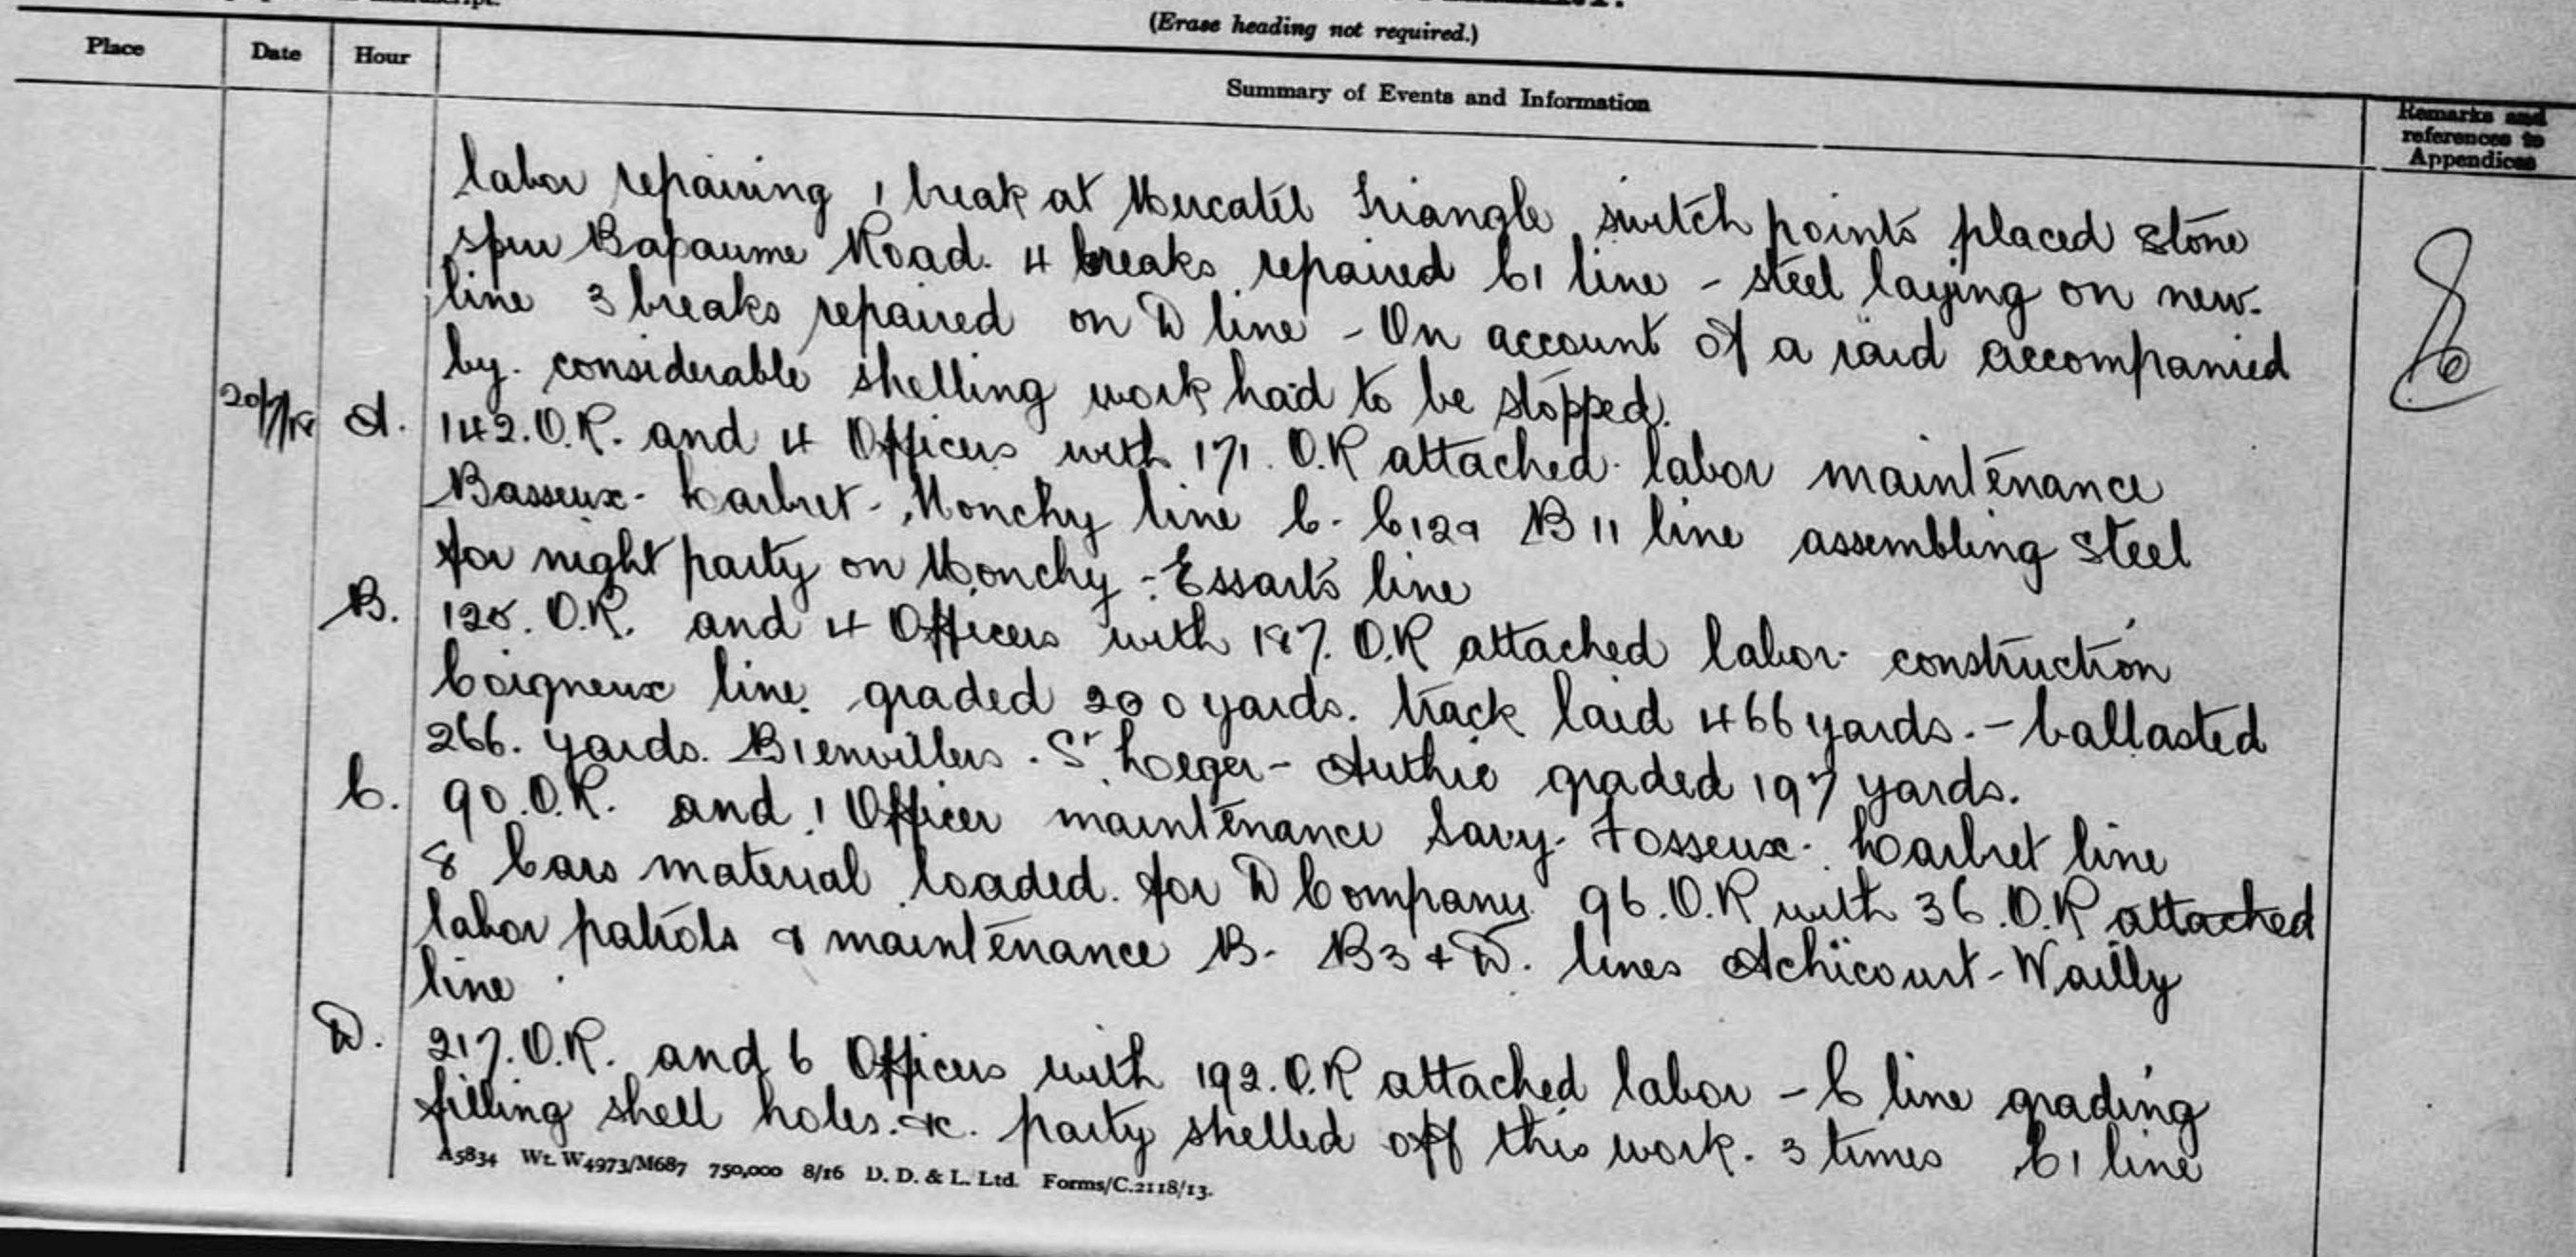 (Erase heading not required.)
Place Date Hour Summary of Events and Information Remarks and references to Appendices
labor repairing 1 break at Mercatel Triangle switch points placed stone
spur Bapaume Road. 4 breaks repaired C1 line - steel laying on new.
line 3 breaks repaired on D line - On account of a raid accompanied
by. considerable shelling work had to be stopped.
20/7/18 A. 142. O.R. and 4 Officers with 171. O.R attached labor maintenance
Basseux - Larbret - Monchy line C - C129 B11 line assembling steel
for night party on Monchy - Essarts line
B. 128. O.R. and 4 Officers with 187. O.R attached labor construction
Coigneux line. graded 200 yards. track laid 466 yards. - ballasted
266. yards. Bienvillers - St. Leger - Authie graded 197 yards.
C. 90. O.R. and 1 Officer maintenance Savy - Fosseux - Larbret line
8 Cars material loaded. for D Company 96. O.R with 36. O.R attached
labor patrols & maintenance B - B3 & D. lines Achicourt - Wailly
line
D. 217. O.R. and 6 Officers with 192. O.R attached labor - C line grading
filling shell holes. &c. party shelled off this work. 3 times C1 line
A5834 Wt. W4973/M687 750,000 8/16 D. D. & L. Ltd. Forms/C.2118/13.